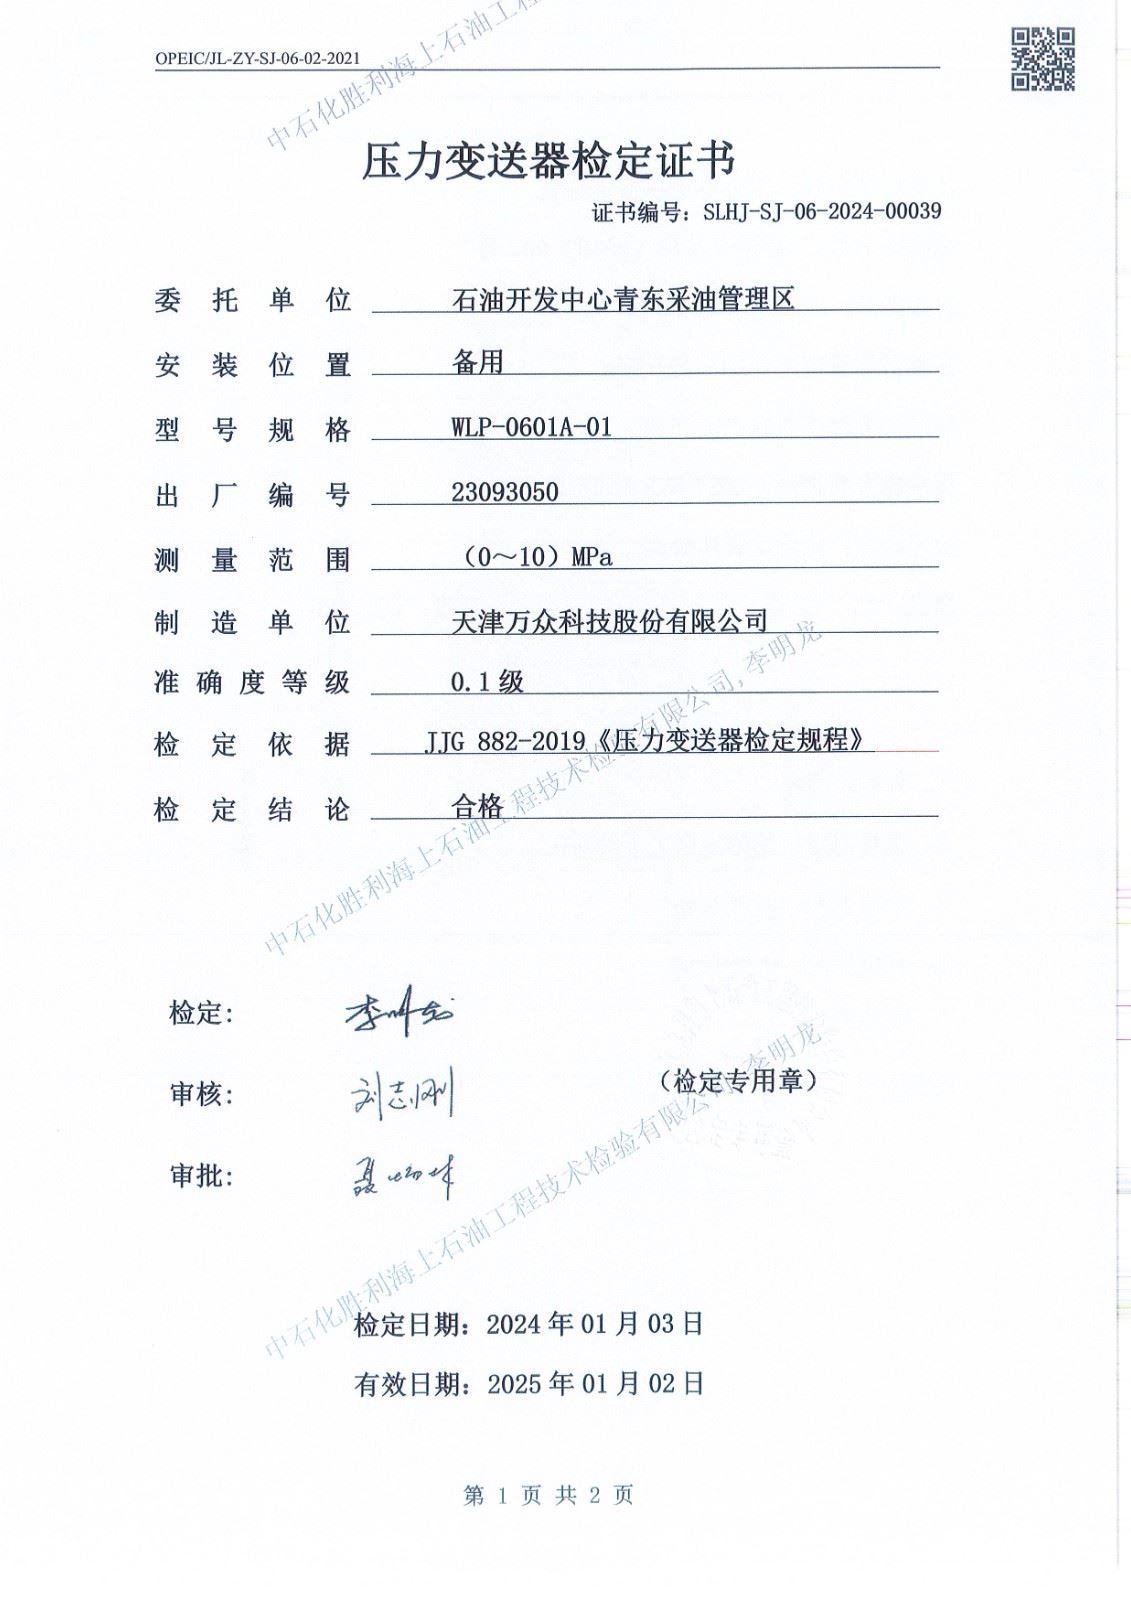 OPEIC/JL-ZY-SJ-06-02-2021
中石化胜利海上石油工
压力变送器检定证书
证书编号：SLHJ-SJ-06-2024-00039
委托单位 石油开发中心青东采油管理区
安装位置 备用
型号规格 WLP-0601A-01
出厂编号 23093050
测量范围 （0～10）MPa
制造单位 天津万众科技股份有限公司
准确度等级 0.1级
检定依据 JJG 882-2019《压力变送器检定规程》
检定结论 合格
中石化胜利海上石油工程技术检验有限公司,李明龙
检定： 李明龙
审核： 刘志刚
（检定专用章）
审批：
中石化胜利海上石油工程技术检验有限公司,李明龙
检定日期：2024年01月03日
有效日期：2025年01月02日
第 1 页 共 2 页